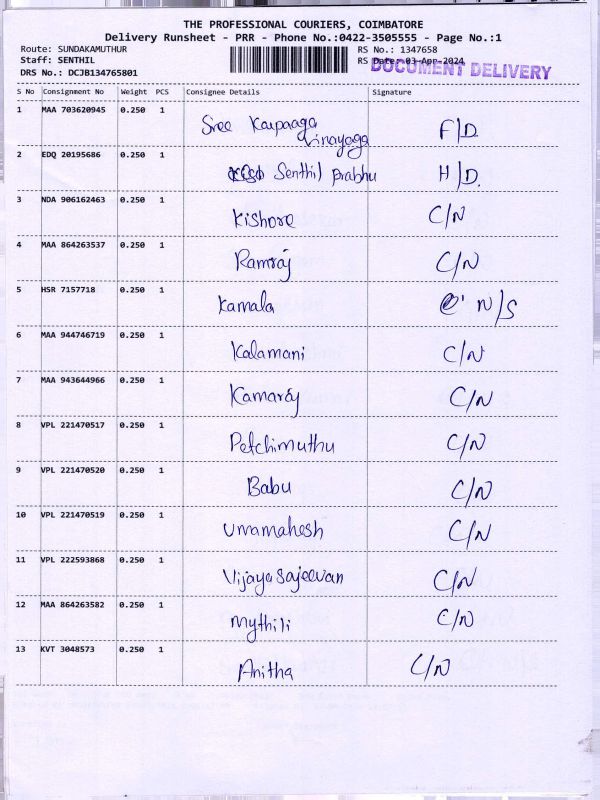 THE PROFESSIONAL COURIERS, COIMBATORE
Delivery Runsheet - PRR - Phone No.:0422-3505555 - Page No.:1
Route: SUNDAKAMUTHUR RS No.: 1347658
Staff: SENTHIL RS Date: 03-Apr-2024
DOCUMENT DELIVERY
DRS No.: DCJB134765801
S No Consignment No Weight PCS Consignee Details Signature
1 MAA 703620945 0.250 1 Sree Karpaaga F/D.
Vinayaga
2 EDQ 20195686 0.250 1 Senthil prabhu H/D.
3 NDA 906162463 0.250 1 Kishore C/N
4 MAA 864263537 0.250 1 Ramraj C/N
5 HSR 7157718 0.250 1 Kamala N/S
6 MAA 944746719 0.250 1 Kalamani C/N
7 MAA 943644966 0.250 1 Kamaraj C/N
8 VPL 221470517 0.250 1 Petchimuthu C/N
9 VPL 221470520 0.250 1 Babu C/N
10 VPL 221470519 0.250 1 Umamahesh C/N
11 VPL 222593868 0.250 1 Vijaya sajeevan C/N
12 MAA 864263582 0.250 1 Mythili C/N
13 KVT 3048573 0.250 1 Anitha C/N